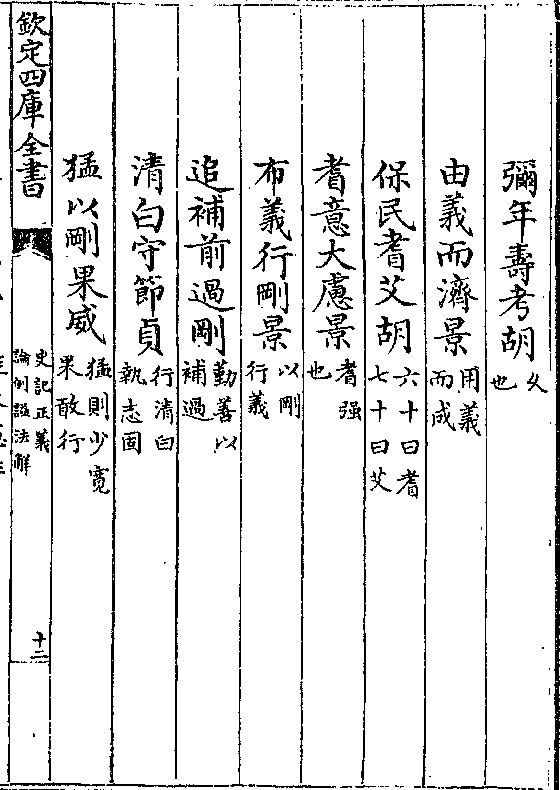 彌年壽考胡久也
由義而濟景用義而成
保民耆艾胡六十曰耆七十曰艾
耆意大慮景耆强也
布義行剛景以剛行義
追補前過剛勤善以補過
清白守節貞行清白執志固
猛以剛果威猛則少寛果敢行
欽定四庫全書
史記正義
論例諡法解
十二